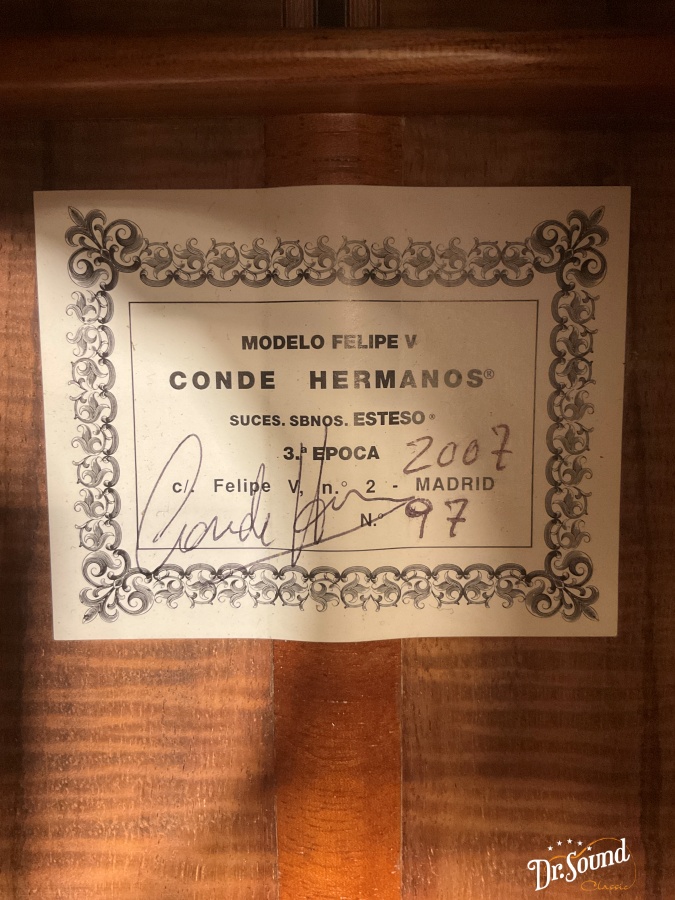 MODELO FELIPE V
CONDE HERMANOS®
SUCES. SBNOS. ESTESO®
3.ª EPOCA 2007
c/. Felipe V, n.° 2 - MADRID
N.° 97
Conde Hnos
Dr. Sound
Classic